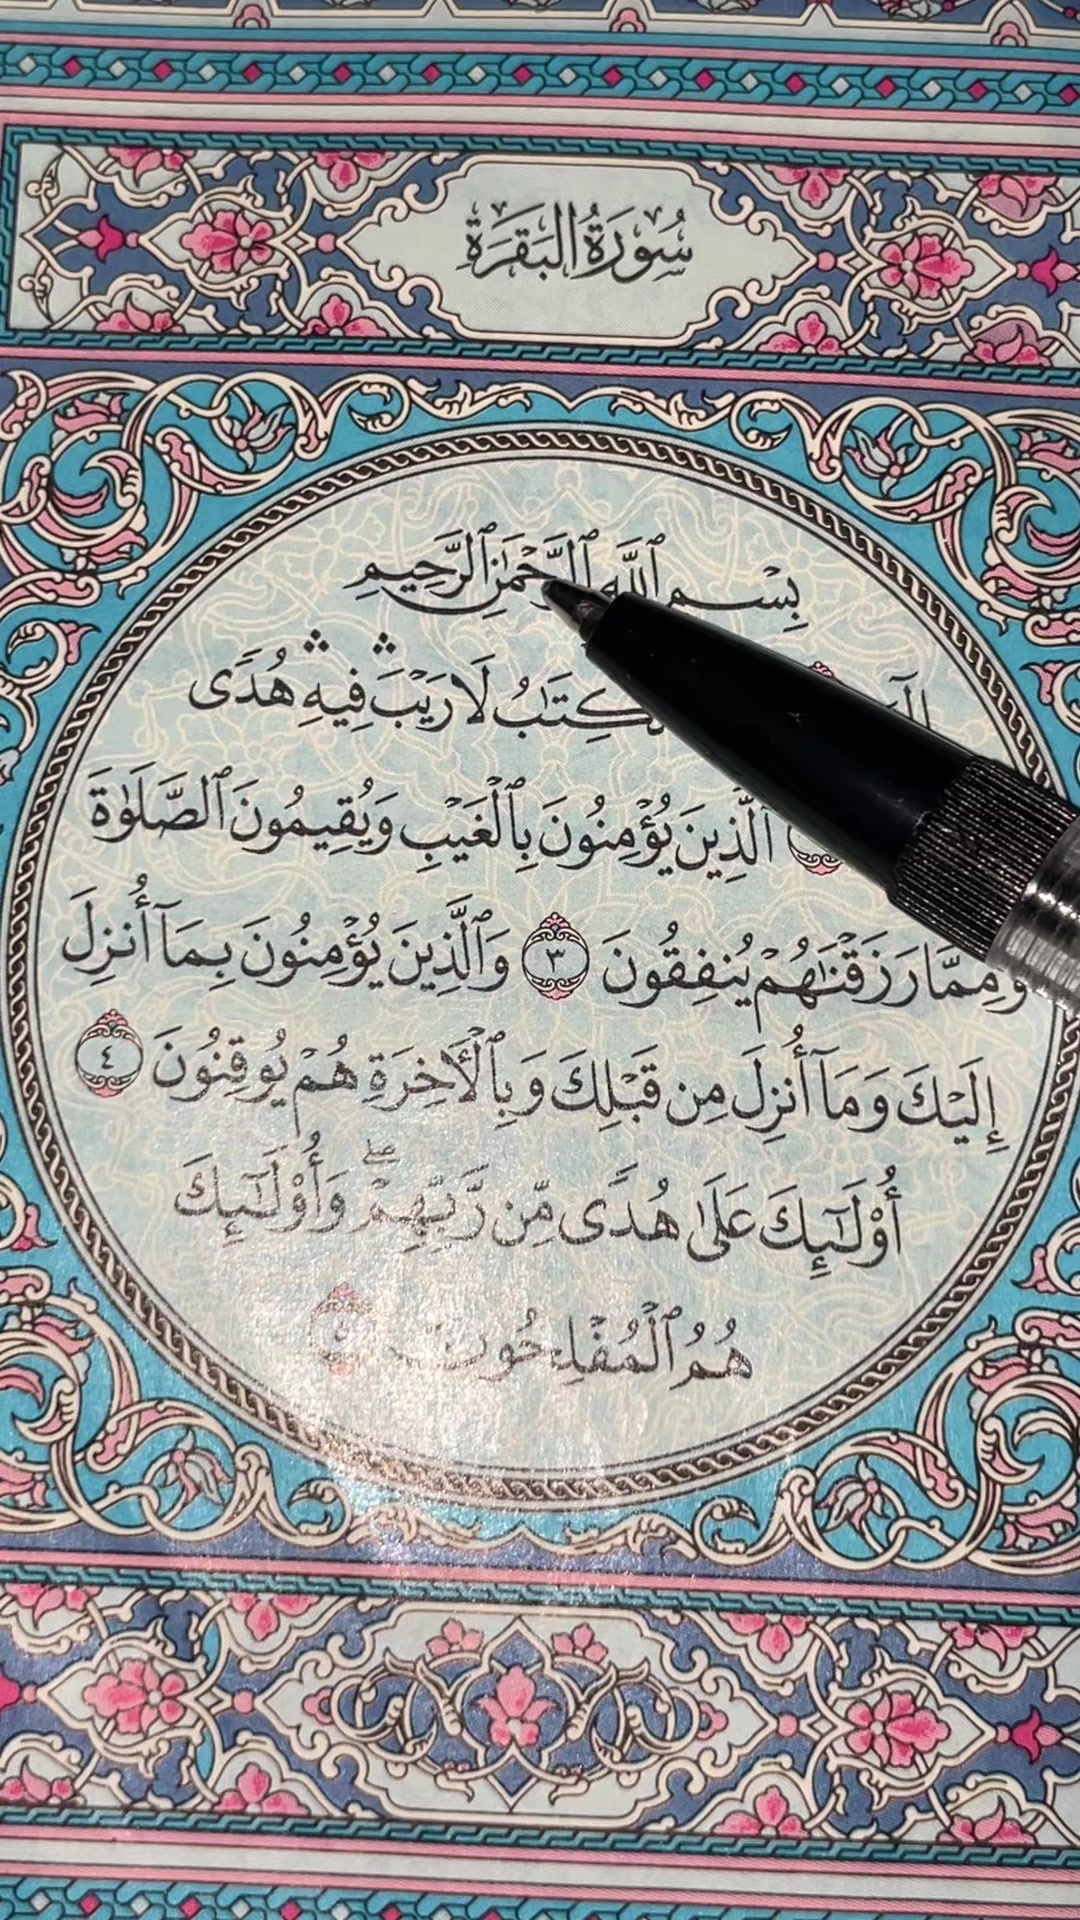 سُورَةُ البَقَرَةِ
بِسْمِ ٱللَّهِ ٱلرَّحْمَٰنِ ٱلرَّحِيمِ
لَا رَيْبَ ۛ فِيهِ ۛ هُدًى
ٱلَّذِينَ يُؤْمِنُونَ بِٱلْغَيْبِ وَيُقِيمُونَ ٱلصَّلَوٰةَ
وَمِمَّا رَزَقْنَٰهُمْ يُنفِقُونَ ٣ وَٱلَّذِينَ يُؤْمِنُونَ بِمَآ أُنزِلَ
إِلَيْكَ وَمَآ أُنزِلَ مِن قَبْلِكَ وَبِٱلْأَخِرَةِ هُمْ يُوقِنُونَ ٤
أُو۟لَٰٓئِكَ عَلَىٰ هُدًى مِّن رَّبِّهِمْ ۖ وَأُو۟لَٰٓئِكَ
هُمُ ٱلْمُفْلِحُونَ ٥